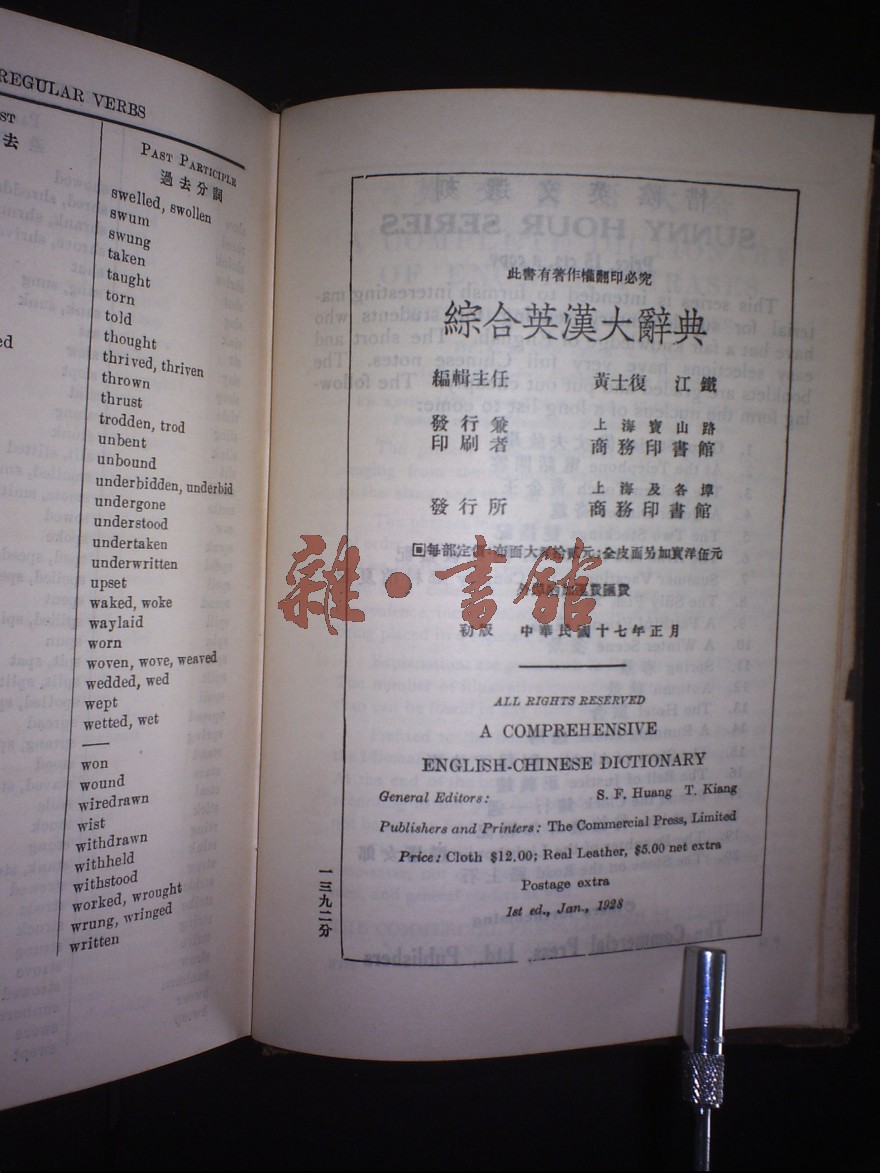 REGULAR VERBS
ST
去
ed
PAST PARTICIPLE
過去分詞
swelled, swollen
swum
swung
taken
taught
torn
told
thought
thrived, thriven
thrown
thrust
trodden, trod
unbent
unbound
underbidden, underbid
undergone
understood
undertaken
underwritten
upset
waked, woke
waylaid
worn
woven, wove, weaved
wedded, wed
wept
wetted, wet
—
won
wound
wiredrawn
wist
withdrawn
withheld
withstood
worked, wrought
wrung, wringed
written
此書有著作權翻印必究
綜合英漢大辭典
編輯主任 黃士復 江鐵
發行兼 上海寶山路
印刷者 商務印書館
上海及各埠
發行所 商務印書館
每部定價 布面大洋拾貳元;全皮面另加實洋伍元
外埠酌加運費匯費
初版 中華民國十七年正月
ALL RIGHTS RESERVED
A COMPREHENSIVE
ENGLISH-CHINESE DICTIONARY
General Editors: S. F. Huang T. Kiang
Publishers and Printers: The Commercial Press, Limited
Price: Cloth $12.00; Real Leather, $5.00 net extra
Postage extra
1st ed., Jan., 1928
一三九二分
雜·書館